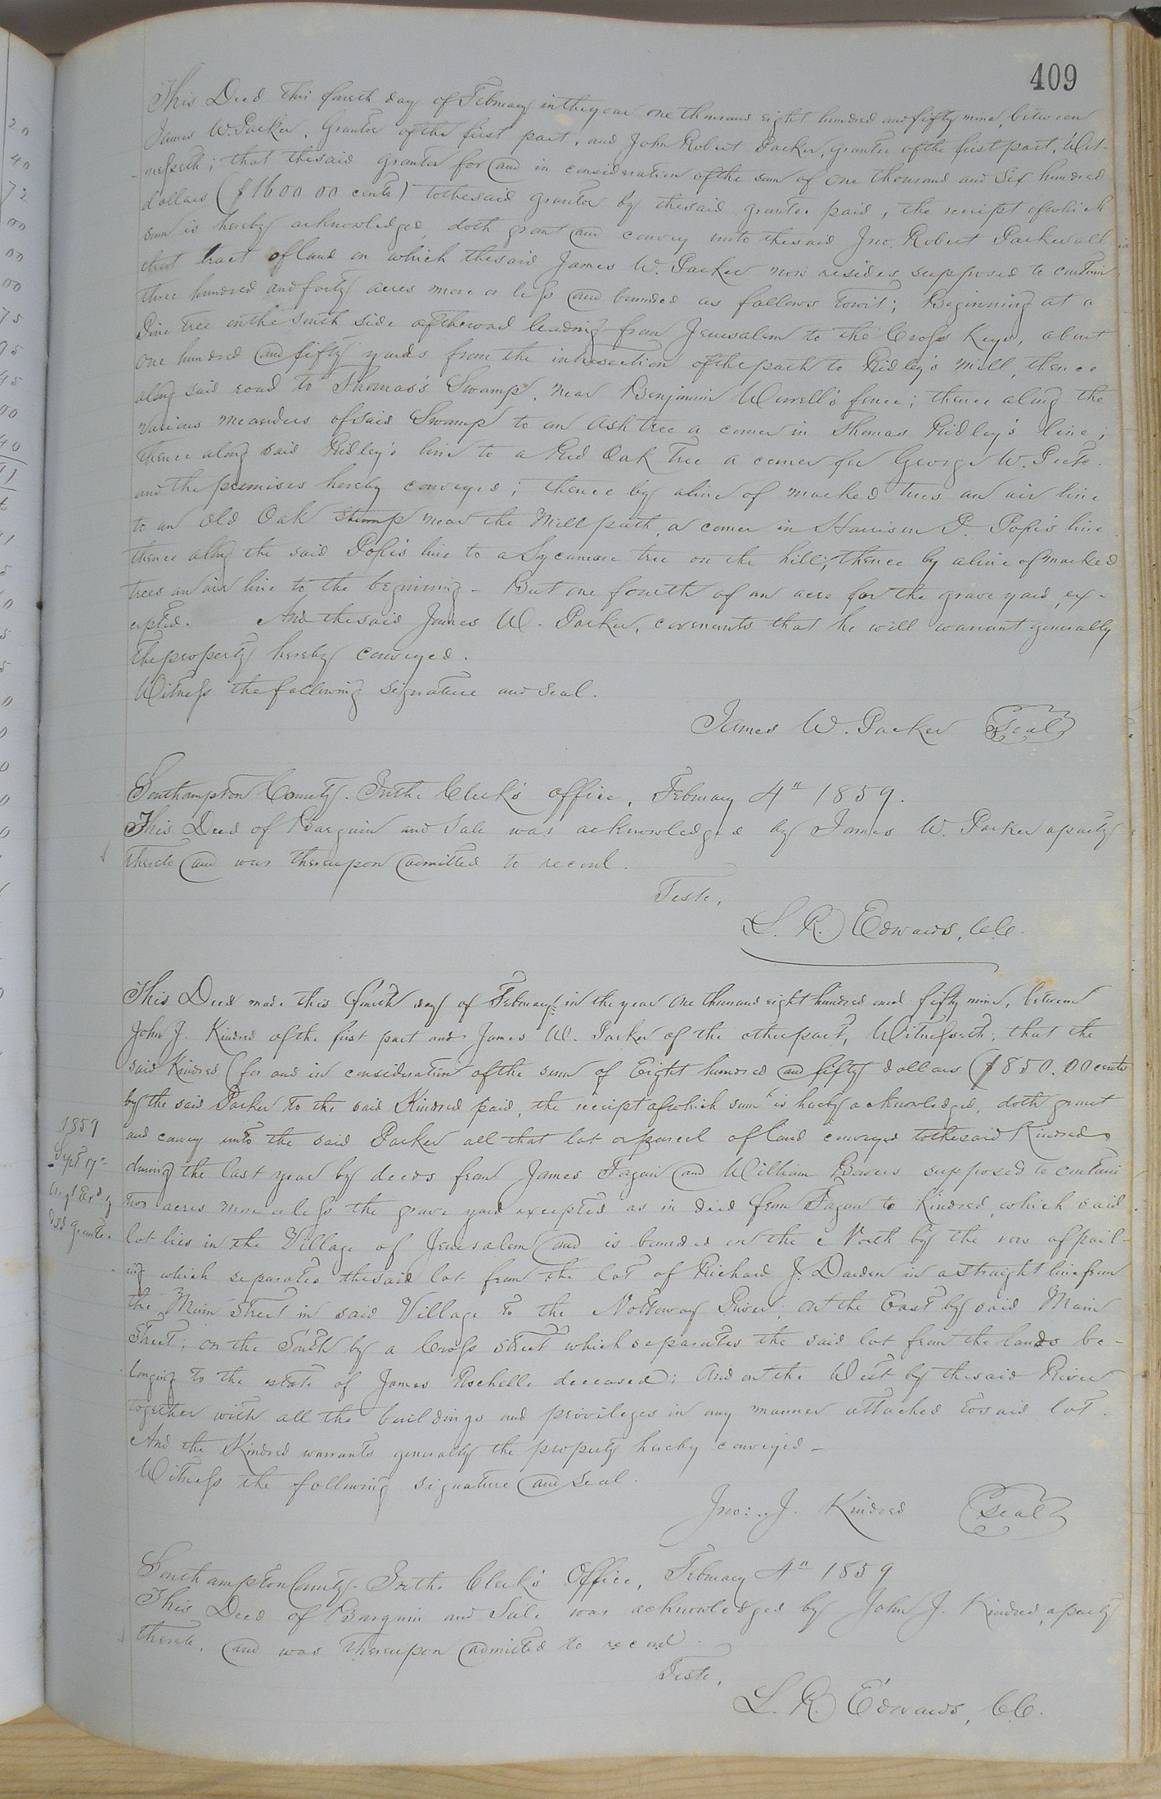 409
This Deed this fourth day of February in the year one thousand eight hundred and fifty nine, between
James W. Parker, Grantor of the first part, and John Robert Parker, grantee of the first part, Wit-
-nesseth; that the said grantor for and in consideration of the sum of one thousand and six hundred
dollars ($1600 00 cents) to the said grantor by the said grantee paid, the receipt of which
sum is hereby acknowledged, doth grant and convey unto the said Jno. Robert Parker all
that tract of land on which the said James W. Parker now resides, supposed to contain
three hundred and forty acres more or less and bounded as follows towit; Beginning at a
Pine tree on the south side of the road leading from Jerusalem to the Cross Keys, about
one hundred and fifty yards from the intersection of the path to Ridley's Mill, thence
along said road to Thomas's Swamp, near Benjamin Worrell's fence; thence along the
various meanders of said Swamp to an ash tree a corner in Thomas Ridley's line;
thence along said Ridley's line to a Red Oak Tree a corner for George W. Peete
and the premises hereby conveyed; thence by a line of marked trees an air line
to an old Oak stump near the Mill path, a corner in Harrison P. Pope's line
thence along the said Pope's line to a Sycamore tree on the hill; thence by a line of marked
trees an air line to the beginning - But one fourth of an acre for the grave yard, ex-
cepted. And the said James W. Parker, covenants that he will warrant generally
the property hereby conveyed.
Witness the following signature and seal.
James W. Parker Seal
Southampton County. In the Clerk's office, February 4th 1859.
This Deed of Bargain and Sale was acknowledged by James W. Parker a party
thereto and was thereupon admitted to record.
Teste,
L. R. Edwards, CC.
This Deed made this fourth day of February in the year one thousand eight hundred and fifty nine, between
John J. Kindred of the first part and James W. Parker of the other part, Witnesseth; that the
said Kindred for and in consideration of the sum of Eight hundred and fifty dollars ($850.00 cents
by the said Parker to the said Kindred paid, the receipt of which sum is hereby acknowledged, doth grant
and convey unto the said Parker all that lot or parcel of land conveyed to the said Kindred
during the last year by deeds from James Fagan and William Bowers supposed to contain
two acres more or less the grave yard excepted as in deed from Fagan to Kindred, which said
lot lies in the Village of Jerusalem and is bounded on the North by the row of pail-
ing which separates the said lot from the lot of Richard J. Darden in a straight line from
the Main Street in said Village to the Nottoway River; on the East by said Main
Street; on the South by a Cross street which separates the said lot from the lands be-
longing to the estate of James Rochelle deceased; And on the West by the said River
together with all the buildings and privileges in any manner attached to said lot.
And the Kindred warrants generally the property hereby conveyed -
Witness the following signature and seal.
Jno: J. Kindred Seal
Southampton County. In the Clerk's Office, February 4th 1859
This Deed of Bargain and Sale was acknowledged by John J. Kindred, a party
thereto, and was thereupon admitted to record.
Teste,
L. R. Edwards, CC.
1859
Sept 17
Orig'l &c d
Grantee